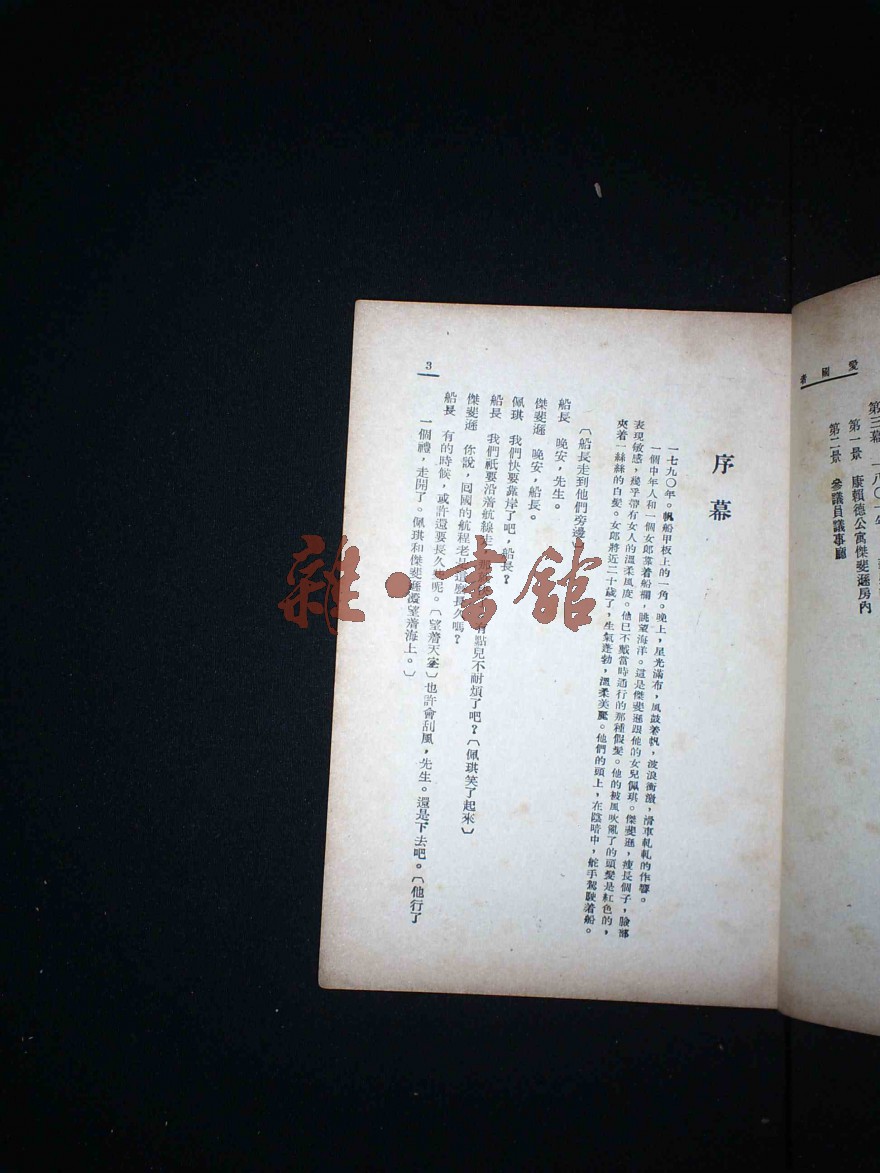 愛國者
第三幕 一八〇一年
第一景 康賴德公寓傑斐遜房內
第二景 參議員議事廳
序幕
一七九〇年。帆船甲板上的一角。晚上，星光滿布，風鼓着帆，波浪衝激，滑車軋軋的作響。
一個中年人和一個女郎靠着船欄，眺望海洋。這是傑斐遜跟他的女兒佩琪。傑斐遜，瘦長個子，臉部
表現敏感，幾乎帶有女人的溫柔風度。他已不戴當時通行的那種假髮。他的被風吹亂了的頭髮是紅色的，
夾着一絲絲的白髮。女郎將近二十歲了，生氣蓬勃，溫柔美麗。他們的頭上，在陰暗中，舵手駕駛着船。
〔船長走到他們旁邊
船長 晚安，先生。
傑斐遜 晚安，船長。
佩琪 我們快要靠岸了吧，船長？
船長 我們祇要沿着航線走 有點兒不耐煩了吧？〔佩琪笑了起來〕
傑斐遜 你說，囘國的航程老是這麼長久嗎？
船長 有的時候，或許還要長久些呢。〔望着天空〕也許會刮風，先生。還是下去吧。〔他行了
一個禮，走開了。佩琪和傑斐遜凝望着海上。〕
3
雜·書館